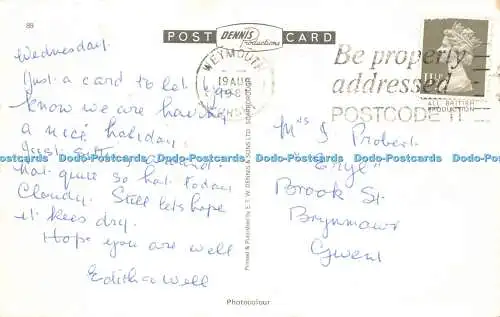 89
POST DENNIS Productions CARD
WEYMOUTH
19 AUG
DORSET
Be properly
addressed
POSTCODE IT
11½P
ALL BRITISH
PRODUCTION
Wednesday.
Just a card to let you
know we are having
a nice holiday.
Just sitting around.
not quite so hot today
Cloudy. Still lets hope
it keeps dry.
Hope you are well
Edith
Mrs J Probert
Brook St.
Brynmawr
Gwent
Printed & Published by E. T. W. DENNIS & SONS LTD. SCARBOROUGH
Photocolour
Dodo-Postcards Dodo-Postcards Dodo-Postcards Dodo-Postcards Dodo-Postcards Dodo-Postcards Dodo-Postcards